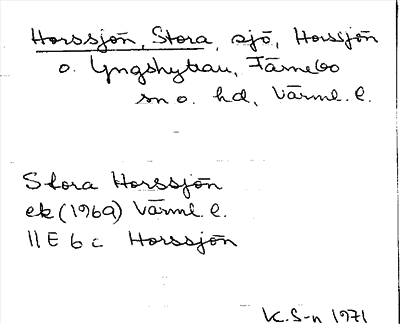 Horssjön, Stora, sjö, Horssjön
o. Lyngshyttan, Färnebo
sn o. hd, Värml. l.
Stora Horssjön
ek (1969) Värml. l.
11 E 6 c Horssjön
K.S-n 1971